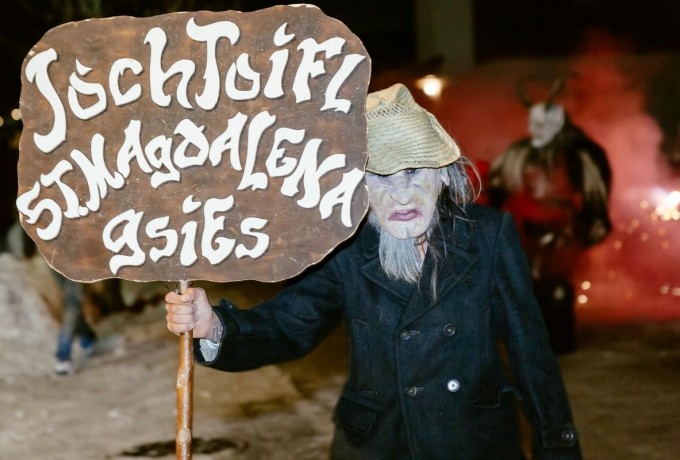 JöchToifl
St.Magdalena
gsiEs